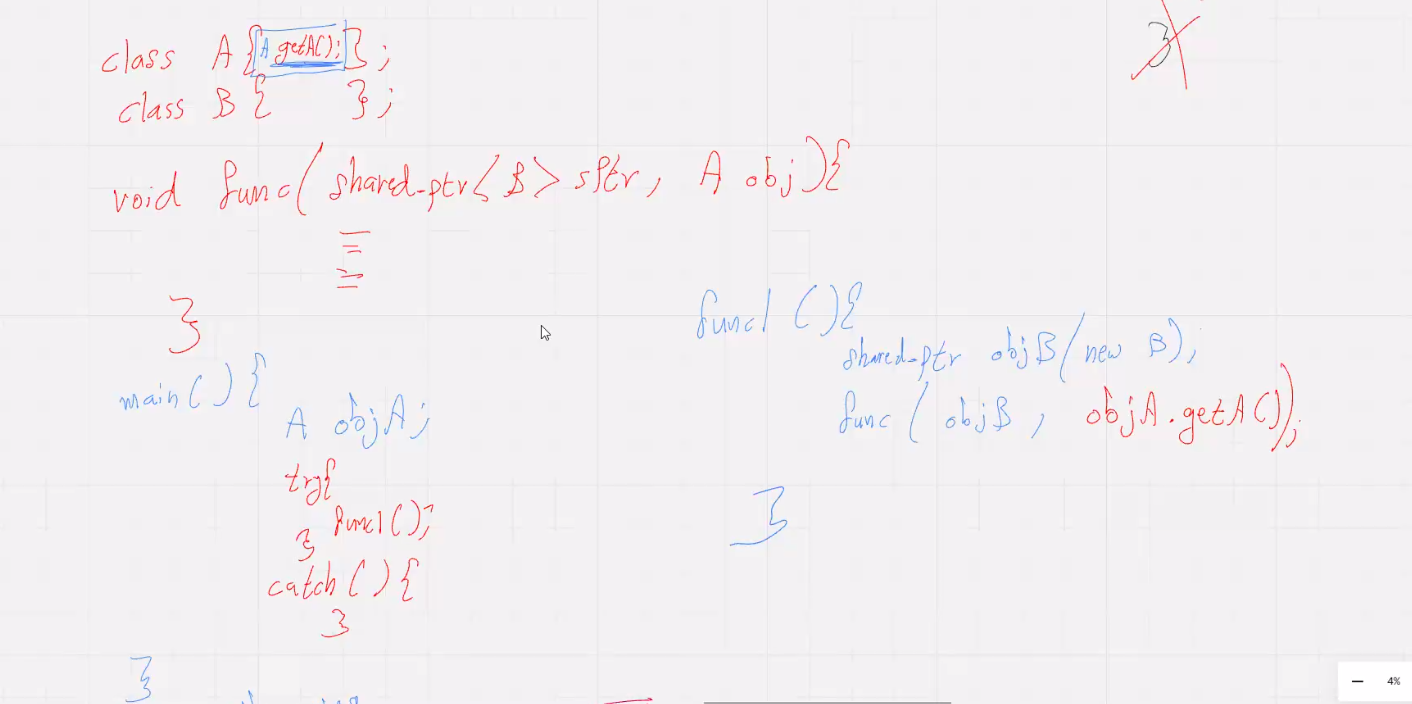 class A { A getA(); } ;
class B { } ;
void func( shared_ptr<B> sptr, A obj){
}
main() {
A objA;
try{
func1();
}
catch() {
}
}
func1 () {
shared_ptr objB(new B);
func ( objB , objA.getA());
}
}
4%